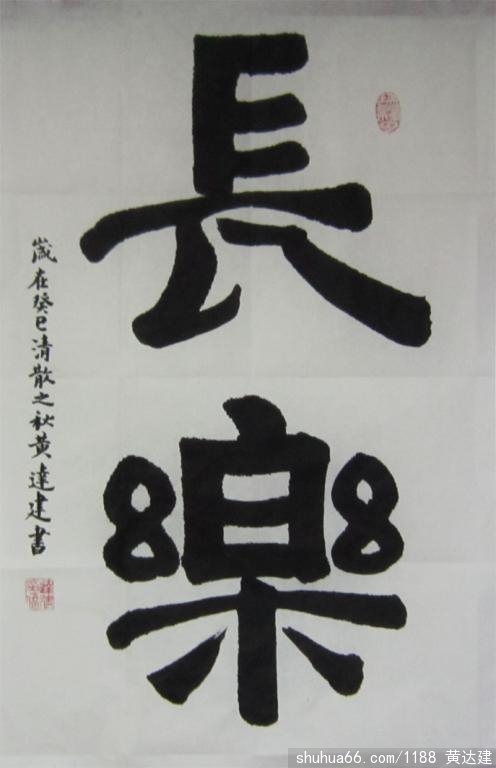 長樂
歲在癸巳清散之秋黄達建書
shuhua66.com/1188 黄达建